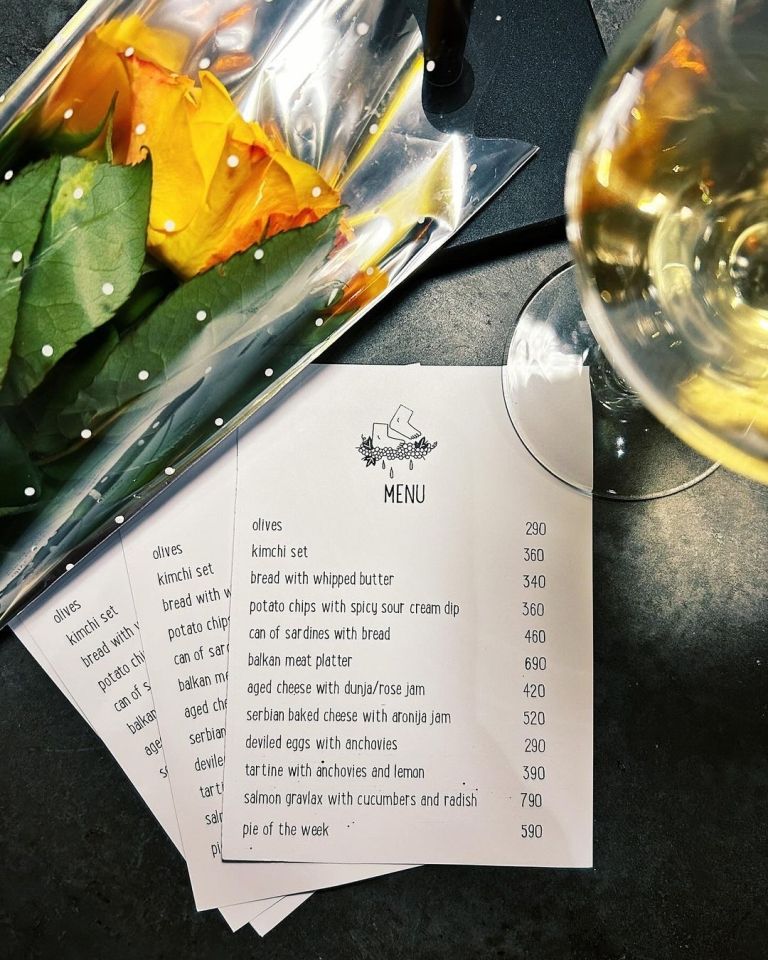 MENU
olives 290
kimchi set 360
bread with whipped butter 340
potato chips with spicy sour cream dip 360
can of sardines with bread 460
balkan meat platter 690
aged cheese with dunja/rose jam 420
serbian baked cheese with aronija jam 520
deviled eggs with anchovies 290
tartine with anchovies and lemon 390
salmon gravlax with cucumbers and radish 790
pie of the week 590
olives
kimchi set
bread with w
potato chips
can of sard
balkan me
aged che
serbian
deviled
tart
salm
pi
olives
kimchi set
bread with
potato chi
can of s
balkan
aged
s